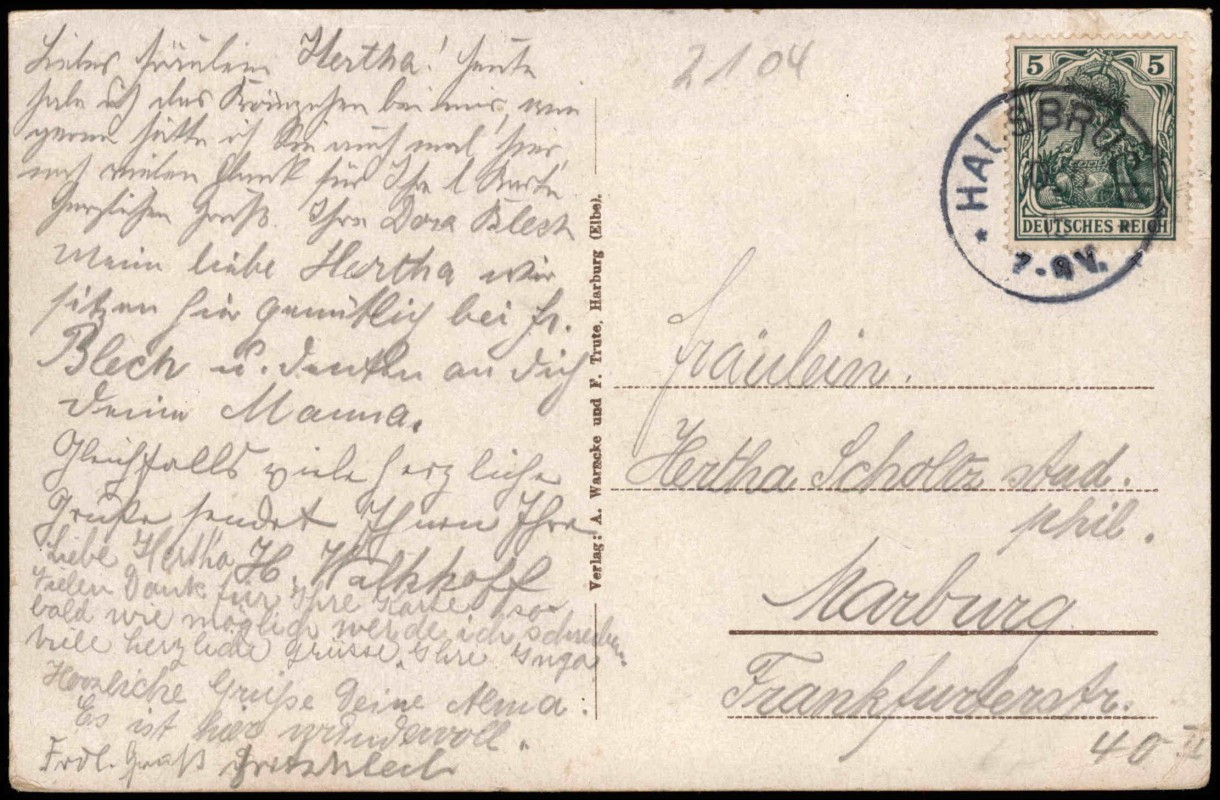 Liebes Fräulein Hertha! Heute
habe ich das Kränzchen bei mir, wie
gerne hätte ich Sie auch mal hier,
mit vielen Dank für Ihre l Karte
herzlichen Gruß. Ihre Dora Blech
Meine liebe Hertha wir
sitzen hier gemütlich bei Fr.
Blech u. denken an dich
deine Mama.
Gleichfalls viele herzliche
Grüße sendet Ihnen Ihre
H. Walkhoff
Liebe Hertha
Vielen Dank für Ihre Karte, so-
bald wie möglich werde ich schreiben.
viele herzliche Grüsse Ihre Inga
Herzliche Grüße Deine Alma.
Es ist hier wundervoll.
Frdl. Gruß
Verlag: A. Warncke und F. Trute, Harburg (Elbe).
2104
5 5
DEUTSCHES REICH
7-8V.
Fräulein.
Hertha Scholtz stud.
phil.
Marburg
Frankfurterstr.
40 II